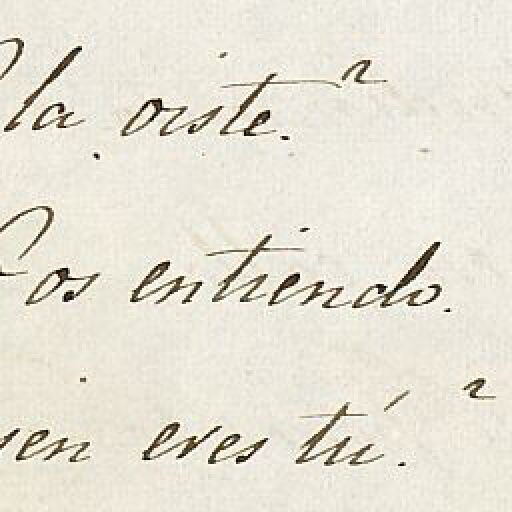 la oiste?
os entiendo.
en eres tú?